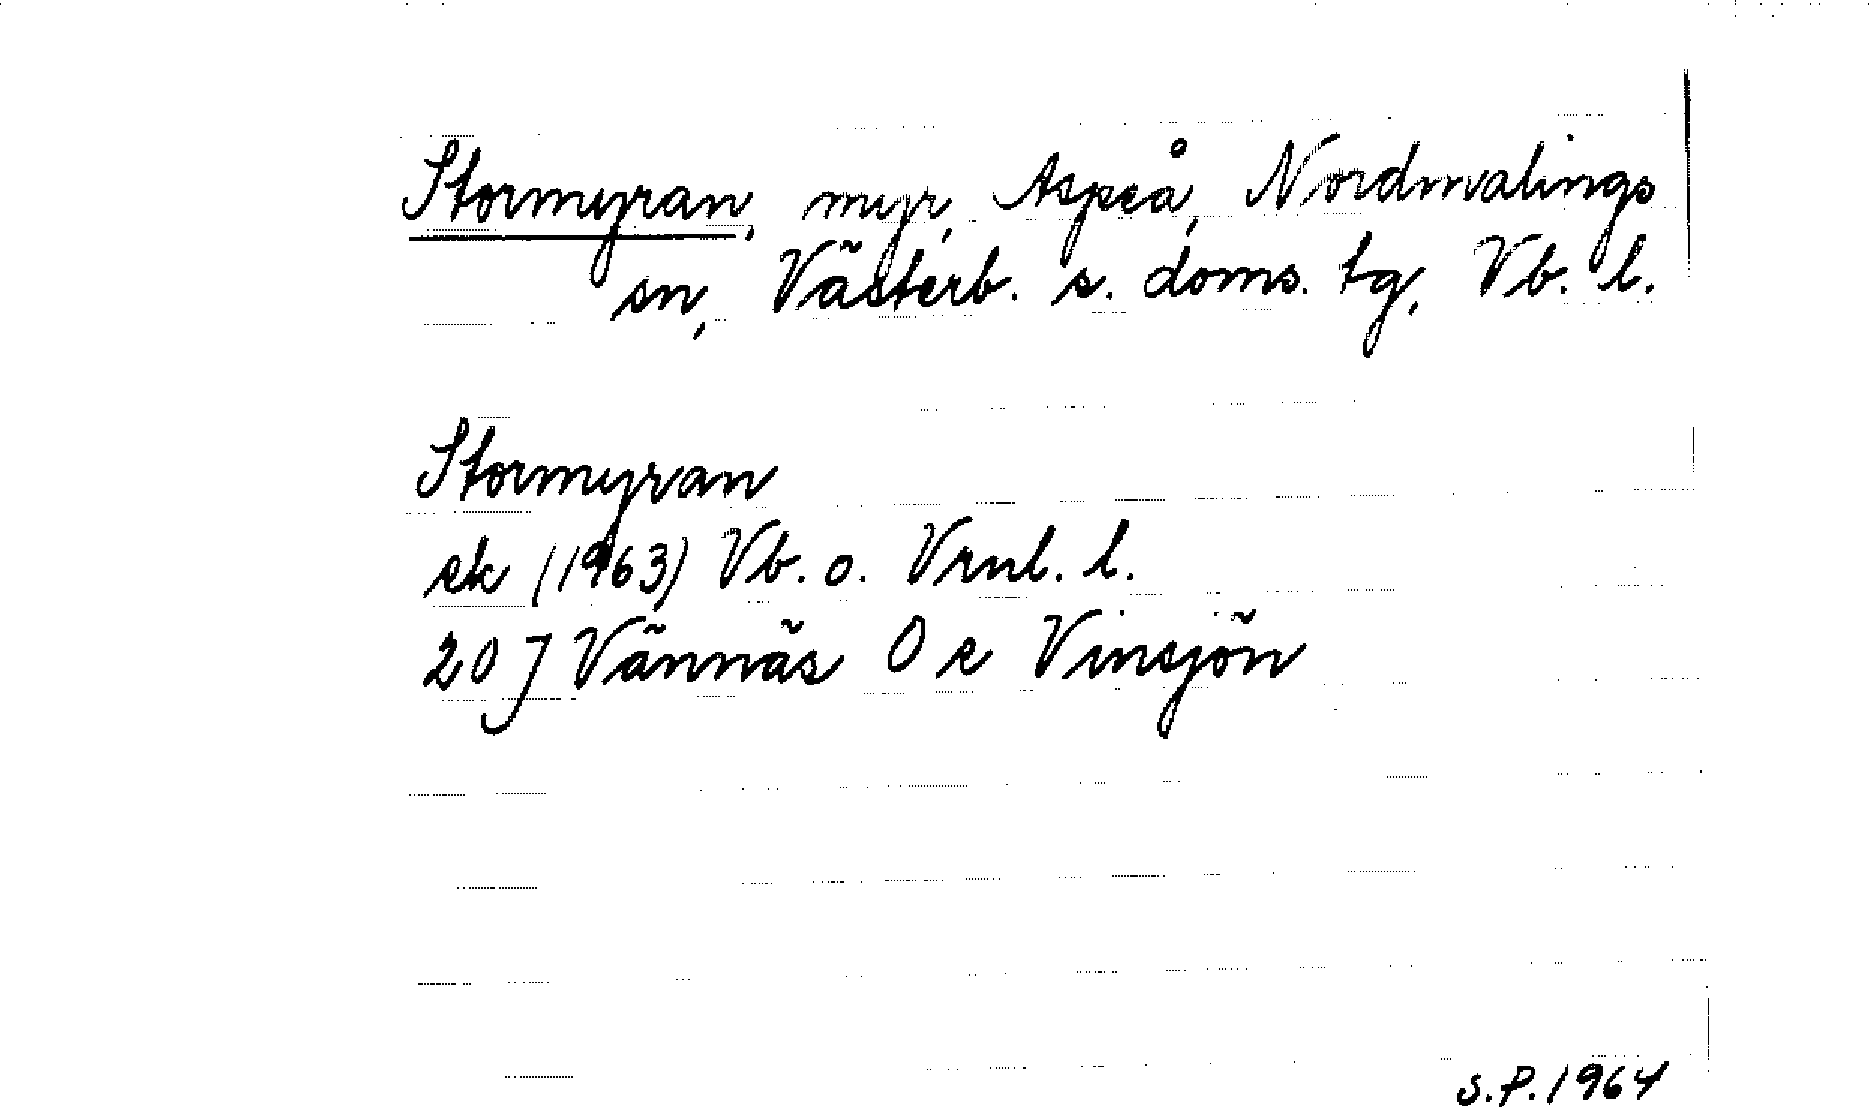 Stormyran, myr, Aspeå, Nordmalings
sn, Västerb. s. doms. tg, Vb. l.
Stormyran
ek (1963) Vb. o. Vrnl. l.
20 J Vännäs 0 e Vinsjön
S.P. 1964